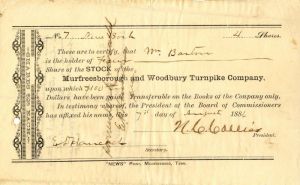 No. 7 4 Shares.
These are to certify, that Wm Barton
is the holder of Four
Share of the STOCK of the
Murfreesborough and Woodbury Turnpike Company,
upon which $100
Dollars have been paid. Transferable on the Books of the Company only.
In testimony whereof, the President of the Board of Commissioners
has affixed his name, this 7th day of August 188
President.
Secretary.
"NEWS" Print, Murfreesboro, Tenn.